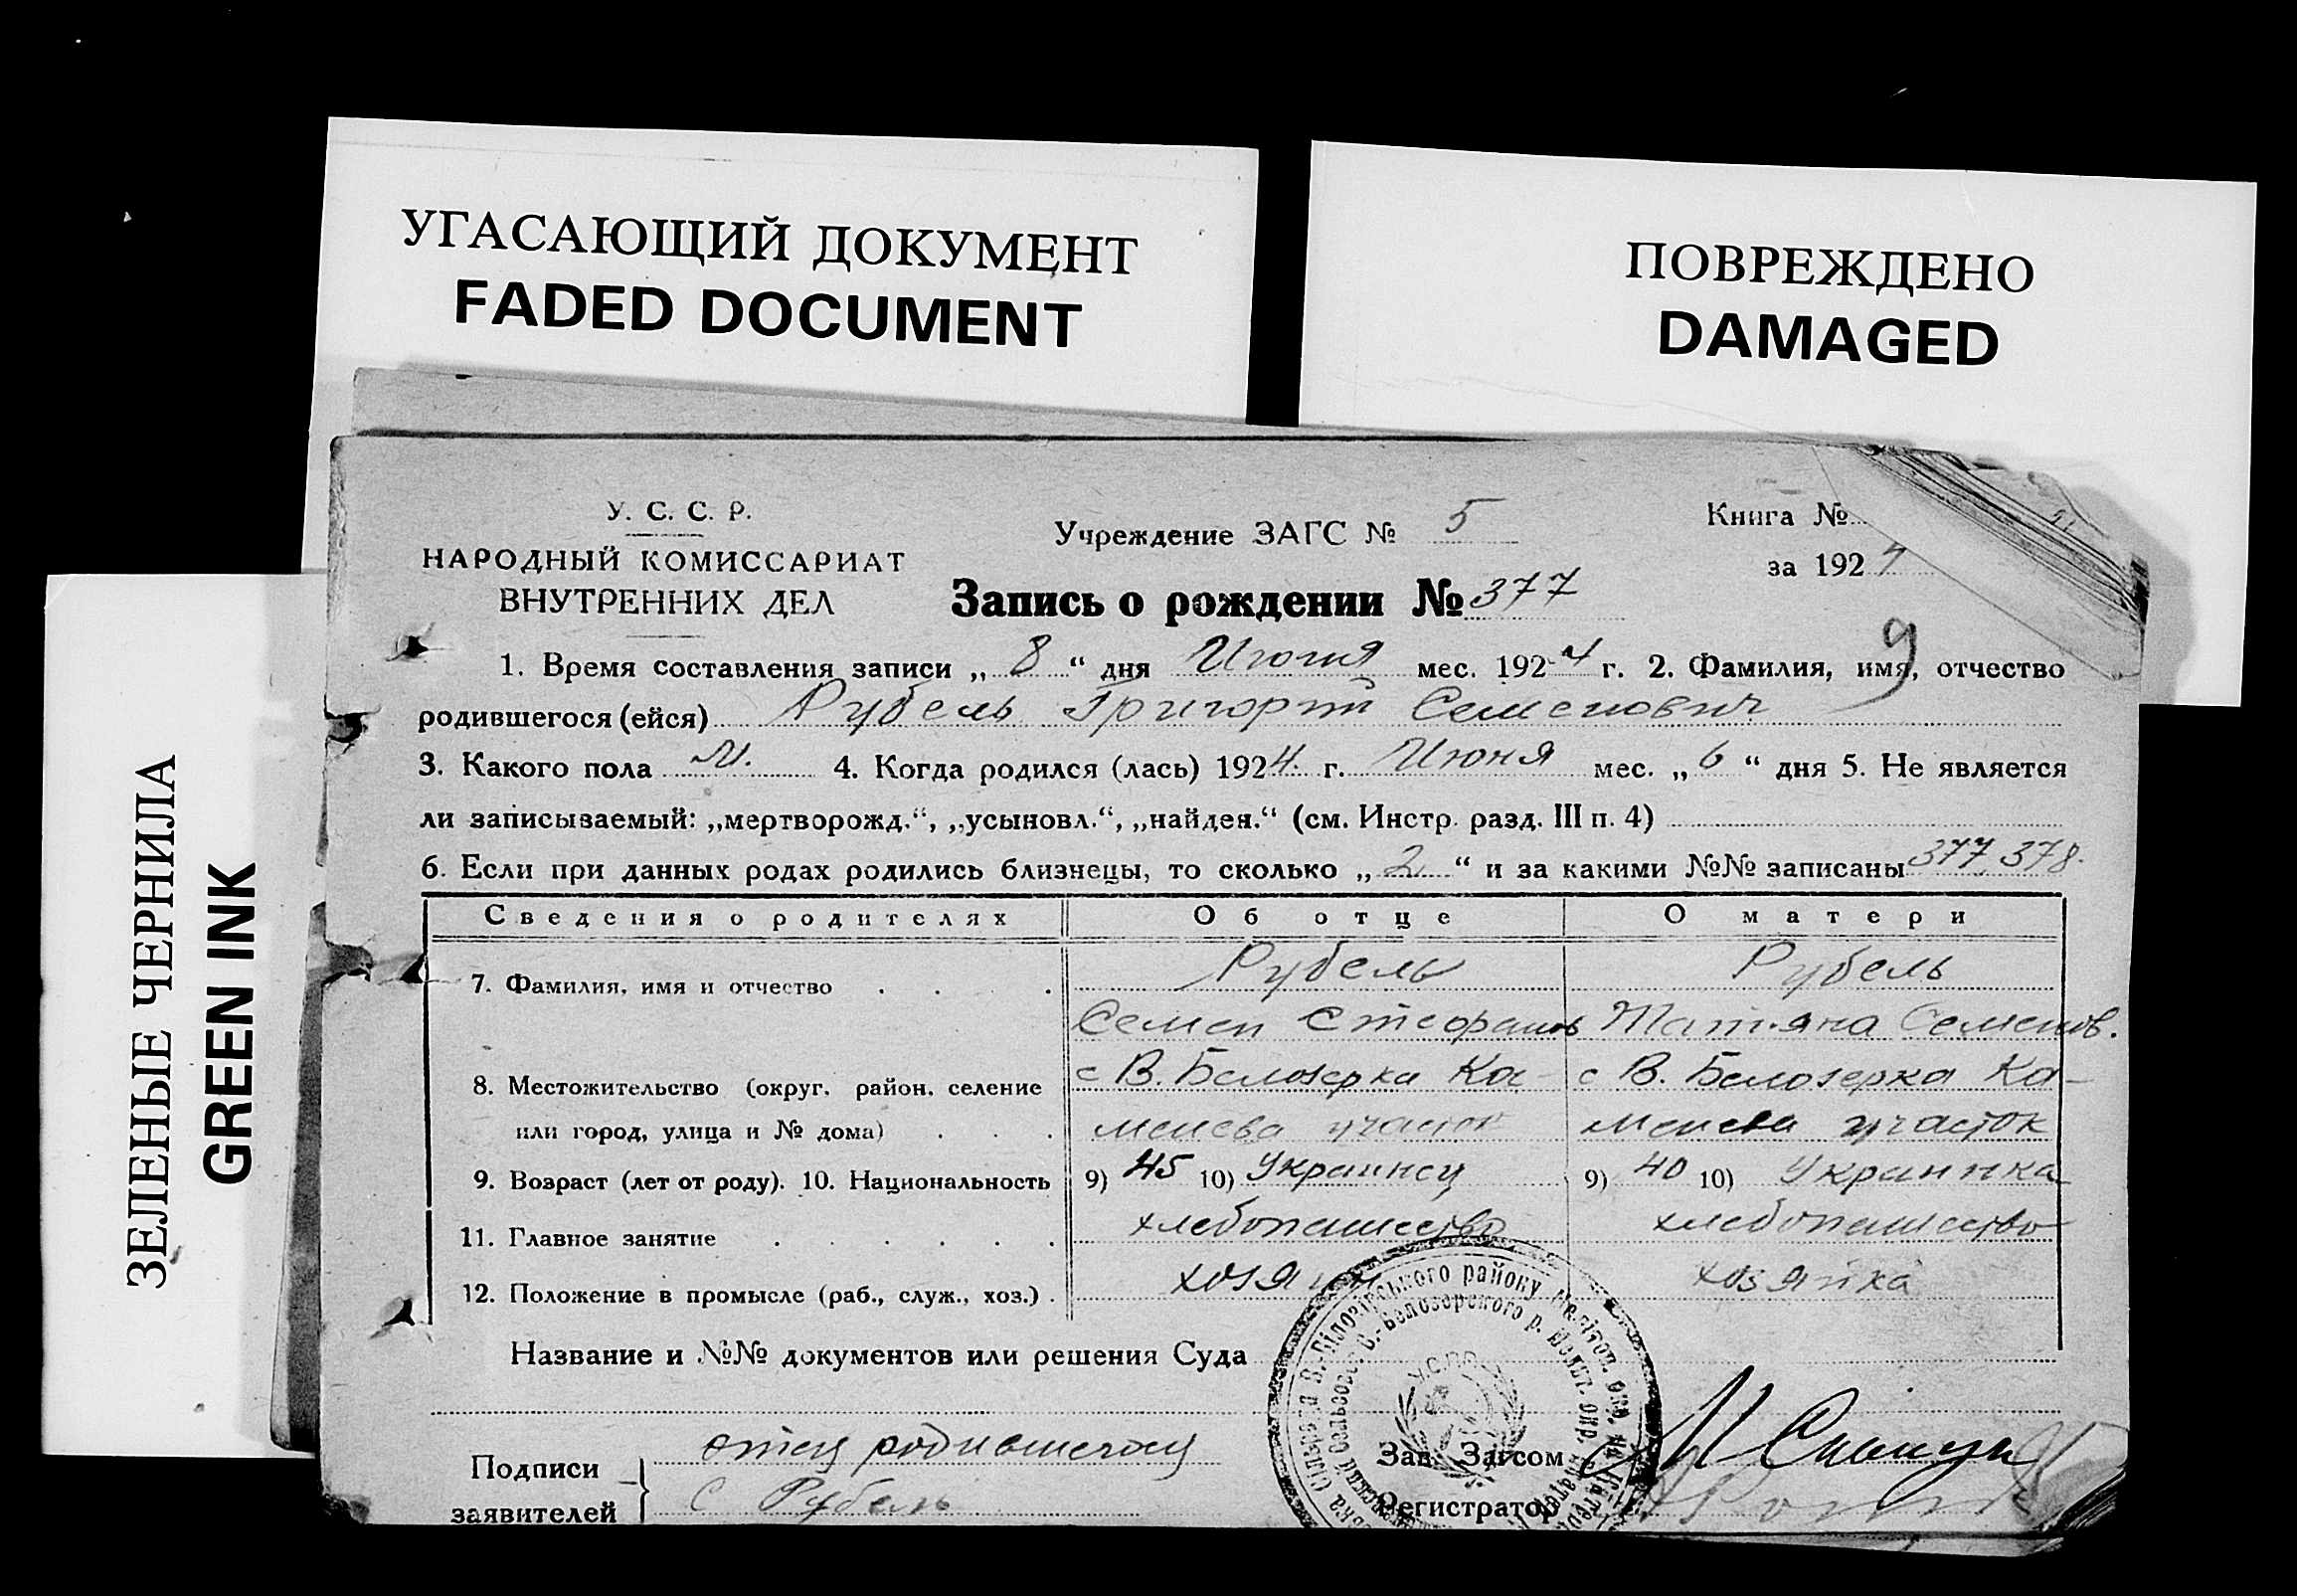 УГАСАЮЩИЙ ДОКУМЕНТ
FADED DOCUMENT
ПОВРЕЖДЕНО
DAMAGED
ЗЕЛЕНЫЕ ЧЕРНИЛА
GREEN INK
У. С. С. Р.
НАРОДНЫЙ КОМИССАРИАТ
ВНУТРЕННИХ ДЕЛ
Учреждение ЗАГС № 5
Книга №
за 1924
Запись о рождении № 377
9
1. Время составления записи „ 8 “ дня Июня мес. 1924 г. 2. Фамилия, имя, отчество
родившегося (ейся) Рубель Григорий Семенович
3. Какого пола М. 4. Когда родился (лась) 1924. г. Июня мес. „ 6 “ дня 5. Не является
ли записываемый: „мертворожд.“, „усыновл.“, „найден.“ (см. Инстр. разд. III п. 4)
6. Если при данных родах родились близнецы, то сколько „ 2 “ и за какими №№ записаны 377, 378.
Сведения о родителях Об отце О матери
7. Фамилия, имя и отчество . . . Рубель Рубель
Семен Стефанов Татьяна Семенов.
8. Местожительство (округ, район, селение с В. Белозерка Ка- с В. Белозерка Ка-
или город, улица и № дома) . . . менева участок менева участок
9. Возраст (лет от роду). 10. Национальность 9) 45 10) Украинец 9) 40 10) Украинка
11. Главное занятие . . . . . . хлебопашество хлебопашество
12. Положение в промысле (раб., служ., хоз.) . хозяин хозяйка
Название и №№ документов или решения Суда
Подписи
заявителей
отец родившегося
С Рубель
Зав. Загсом
Регистратор
У.С.Р.Р.